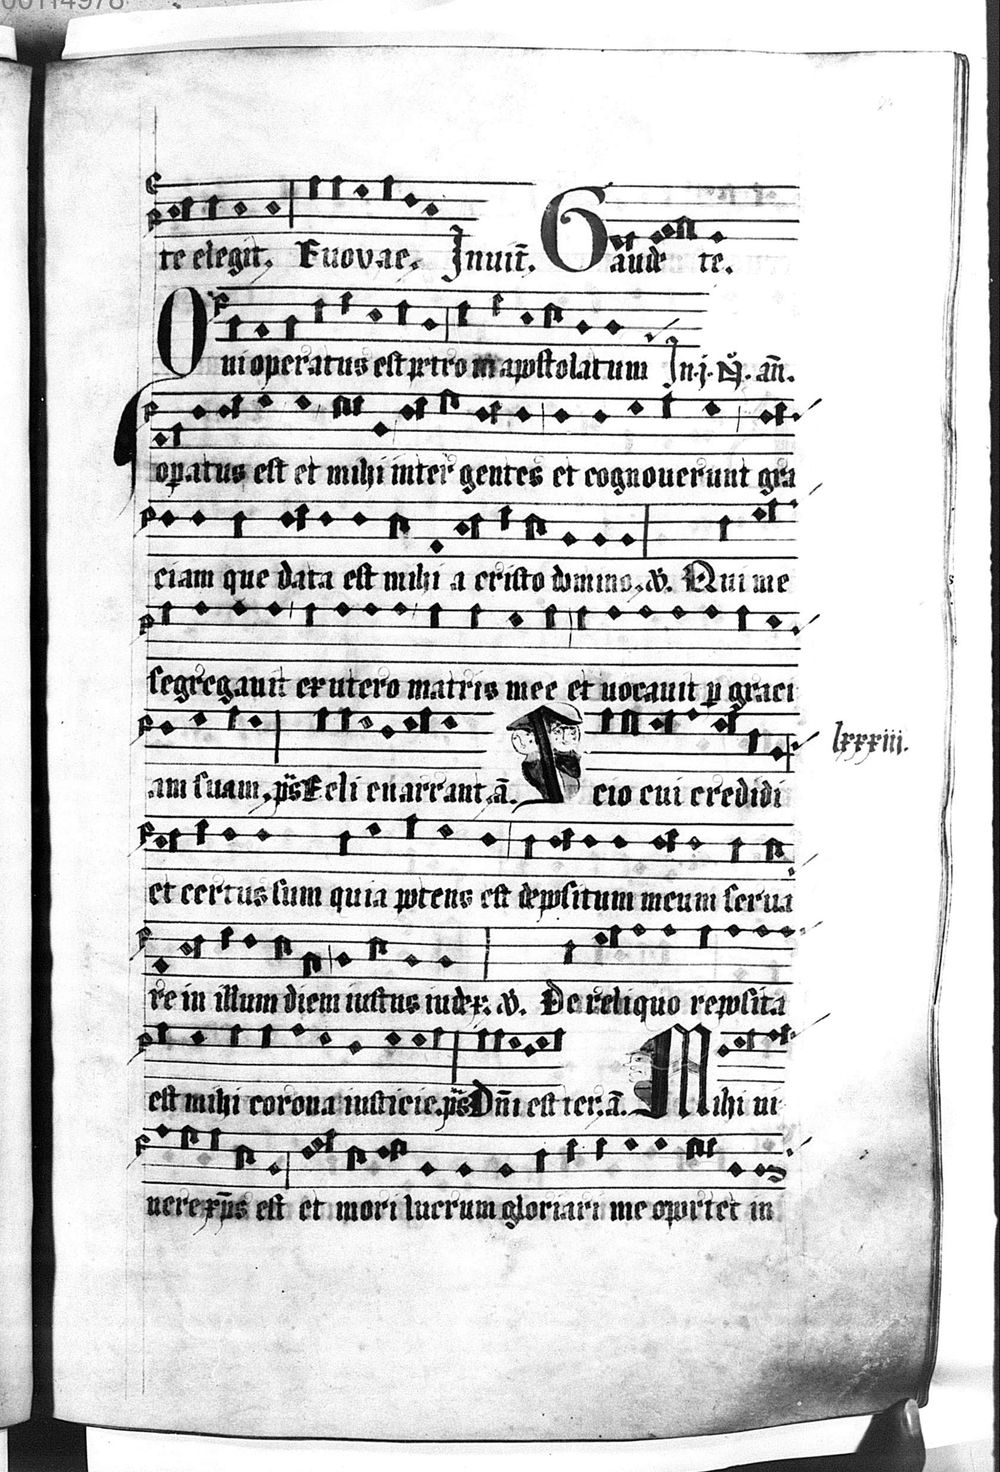 00114978
te elegit. Euouae. Inuit̄. Gaude te.
Qui operatus est petro in apostolatum In .j. an̄.
opatus est et mihi inter gentes et cognouerunt gra
ciam que data est mihi a cristo domino. v̄. Qui me
segregauit ex utero matris mee et uocauit p graci
am suam. ps̄ Celi enarrant. ā. Scio cui credidi
lxxxiii.
et certus sum quia potens est depositum meum serua
re in illum diem iustus iudex. v̄. De reliquo reposita
est mihi corona iusticie. ps̄ Dn̄i est ter. ā. Mihi ui
uere xp̄s est et mori lucrum gloriari me oportet in